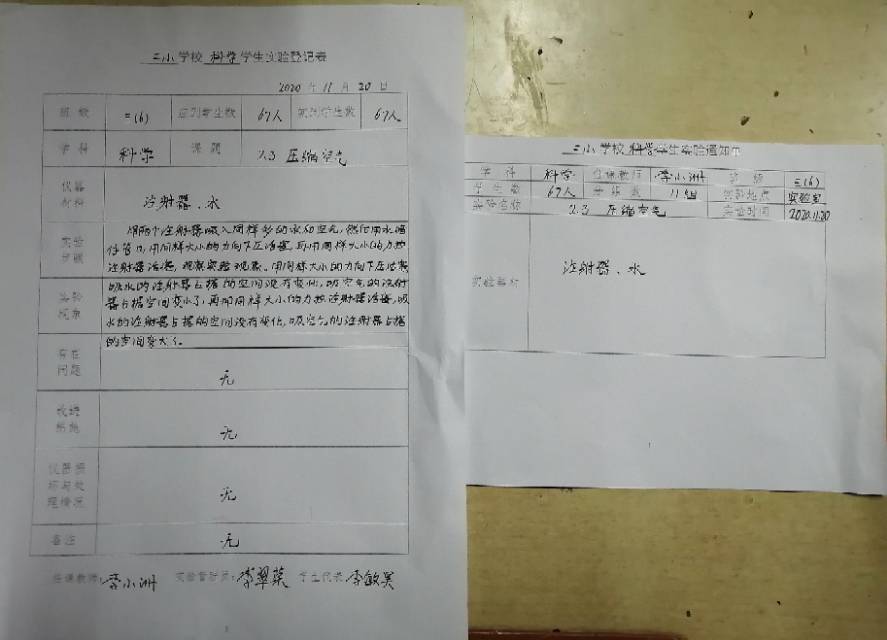 三小学校 科学学生实验登记表
2020年11月20日
班级 三(6) 应到学生数 67人 实到学生数 67人
学科 科学 课题 2.3 压缩空气
仪器材料 注射器、水
实验步骤 用两个注射器吸入同样多的水和空气,然后用水堵
住管口,用同样大小的力向下压活塞,再用同样大小的力拉
注射器活塞,观察实验现象。用同样大小的力向下压活塞
实验现象 吸水的注射器占据的空间没有变化,吸空气的注射
器占据空间变小了,再用同样大小的力拉注射器活塞,吸
水的注射器占据的空间没有变化,吸空气的注射器占据
的空间变大了。
存在问题 无
改进措施 无
仪器损坏与处理情况 无
备注 无
任课教师:李小洲 实验管理员:李翠菜 学生代表:李敏昊
三小学校 科学学生实验通知单
学科 科学 任课教师 李小洲 班级 三(6)
学生数 67人 分组数 11组 实验地点 实验室
实验名称 2.3 压缩空气 实验时间 2020.11.20
实验器材 注射器、水